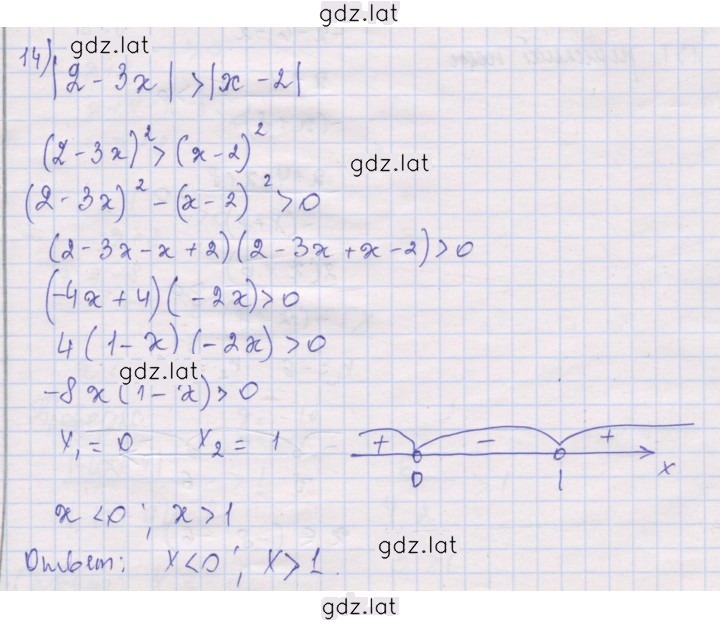 gdz.lat
14) |2 - 3x| > |x - 2|
gdz.lat
(2 - 3x)² > (x - 2)²
gdz.lat
(2 - 3x)² - (x - 2)² > 0
(2 - 3x - x + 2)(2 - 3x + x - 2) > 0
(-4x + 4)(-2x) > 0
4(1 - x)(-2x) > 0
gdz.lat
-8x(1 - x) > 0
x₁ = 0 x₂ = 1
+ - +
0 1 x
x < 0; x > 1
gdz.lat
Ответ: x < 0; x > 1.
gdz.lat